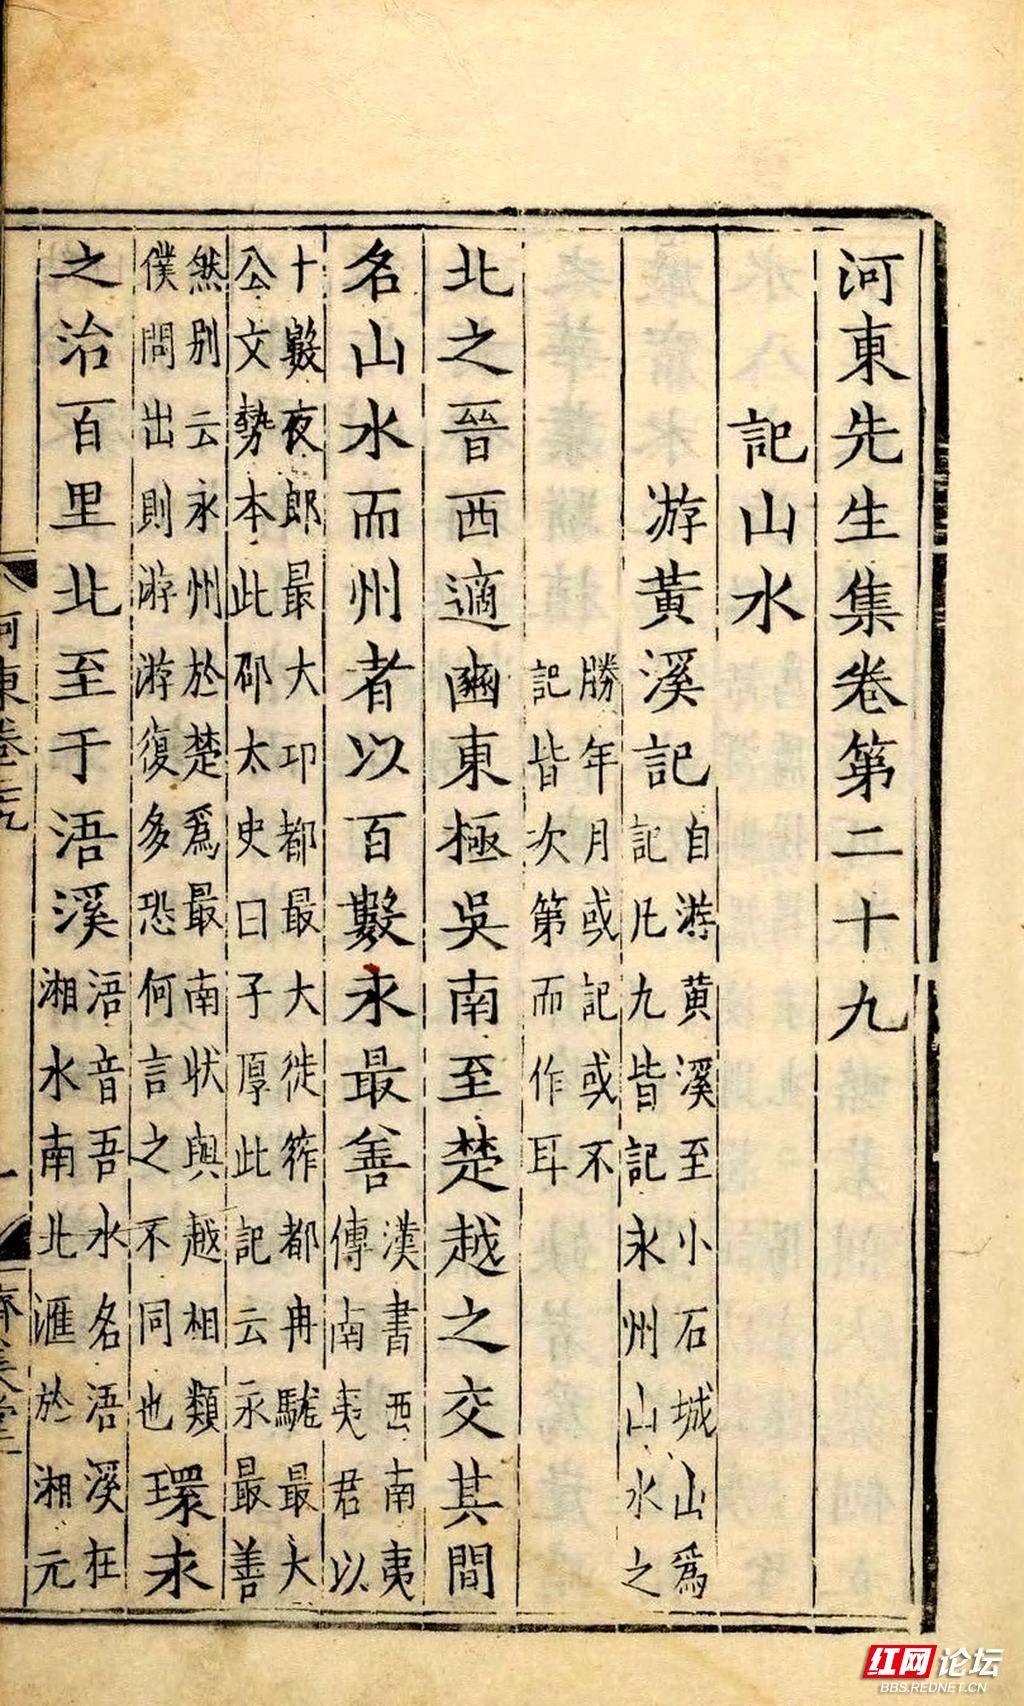 河東先生集卷第二十九
記山水
游黃溪記
自游黃溪至小石城山爲
記凡九皆記永州山水之
勝年月或記或不
記皆次第而作耳
北之晉西適豳東極吳南至楚越之交其間
名山水而州者以百數永最善
漢書西南夷
傳南夷君以
十數夜郎最大卭都最大徙筰都冉駹最大
公文勢本此邵太史曰子厚此記云永最善
然别云永州於楚爲最南狀與越相類
僕悶出則游游復多恐何言之不同也
環永
之治百里北至于浯溪
浯音吾水名浯溪在
湘水南北滙於湘元
河東卷二十九
一
濟美堂
红网论坛
BBS.REDNET.CN